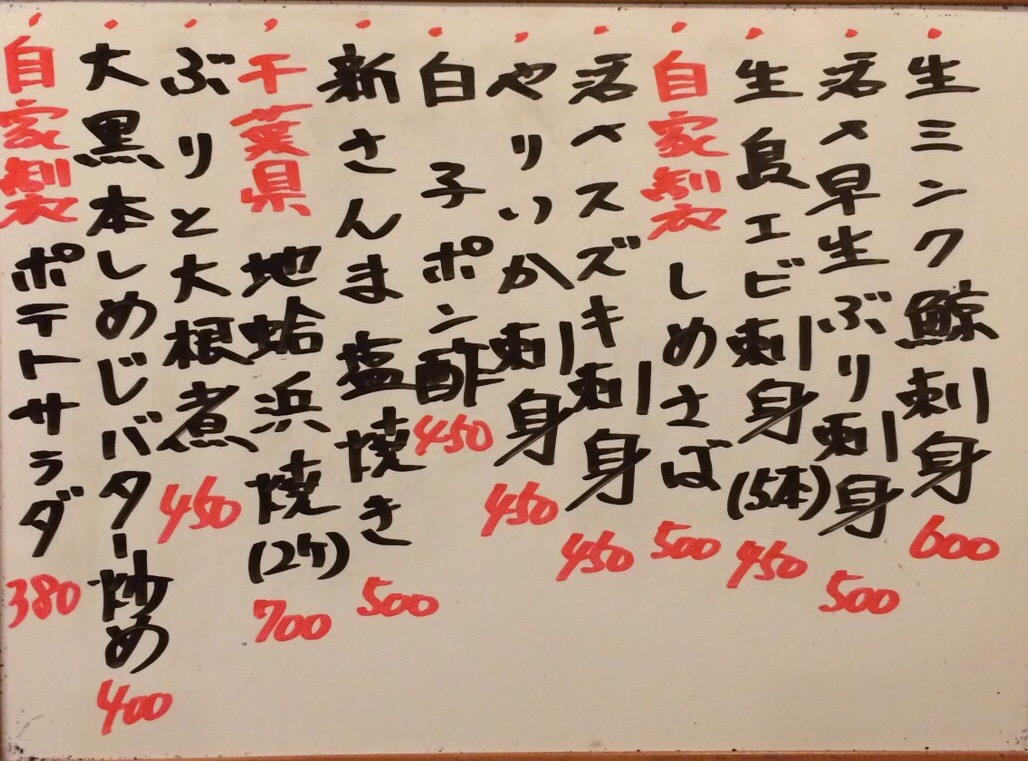 生ミンク鯨刺身 600
活〆早生ぶり刺身 500
生島エビ刺身(5本) 450
自家製しめさば 500
活〆スズキ刺身 450
やりいか刺身 450
白子ポン酢 450
新さんま塩焼き 500
千葉県地蛤浜焼(2ケ) 700
ぶりと大根煮 450
大黒本しめじバター炒め 400
自家製ポテトサラダ 380